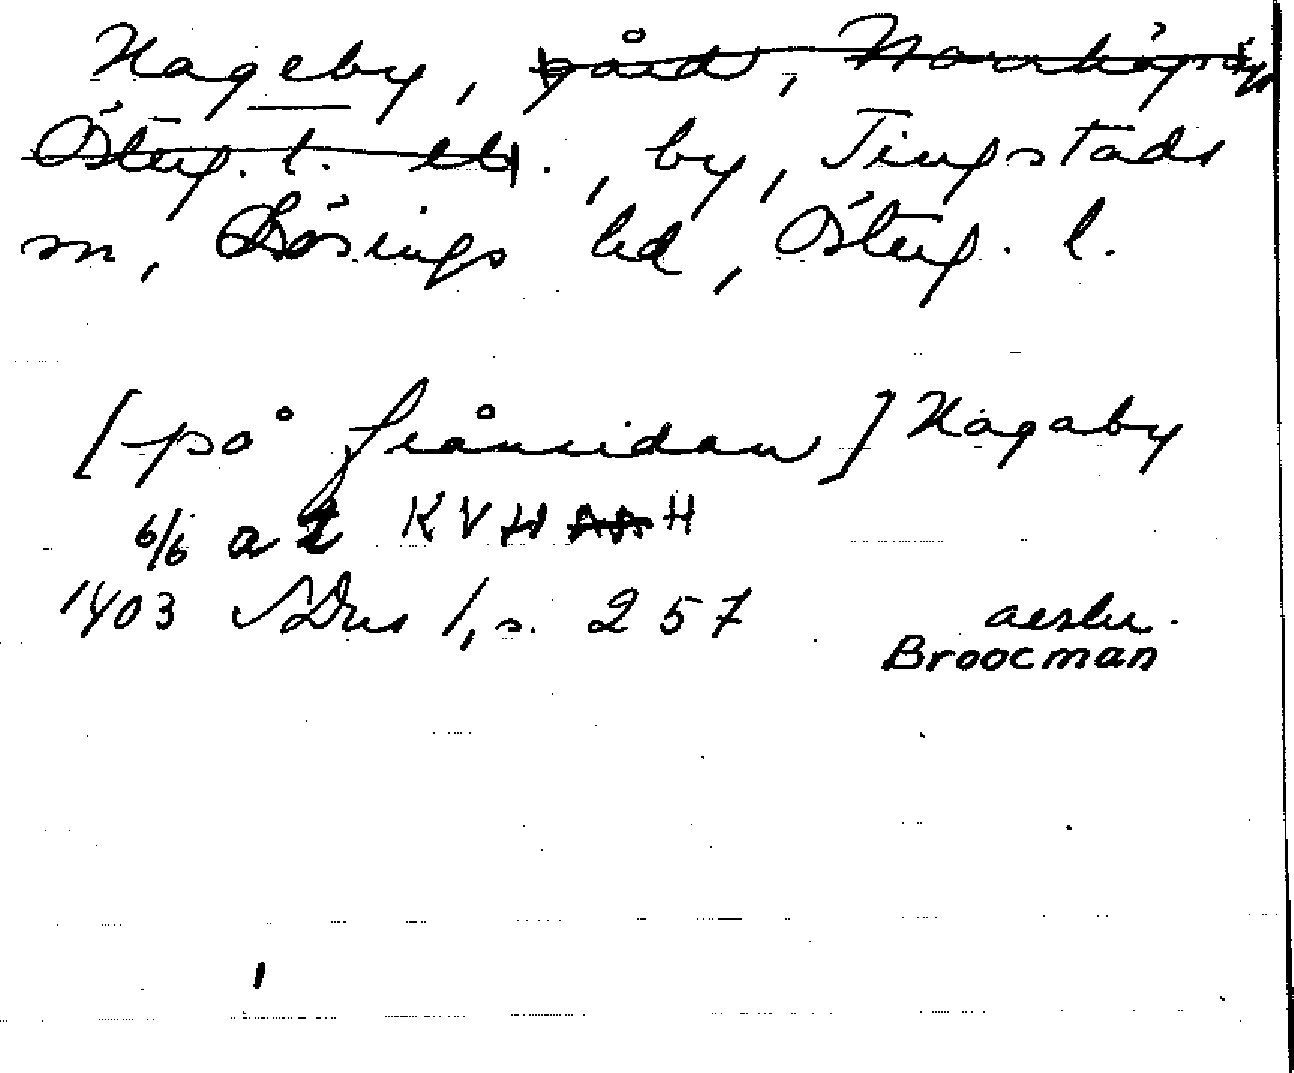 Hageby, gård, Norrköping
Österg. l. , by, Tingstads
sn, Lösings hd, Österg. l.
[på frånsidan] Hagaby
6/6 a KVHAAH
1403 SDns 1, s. 257 aeslu.
Broocman